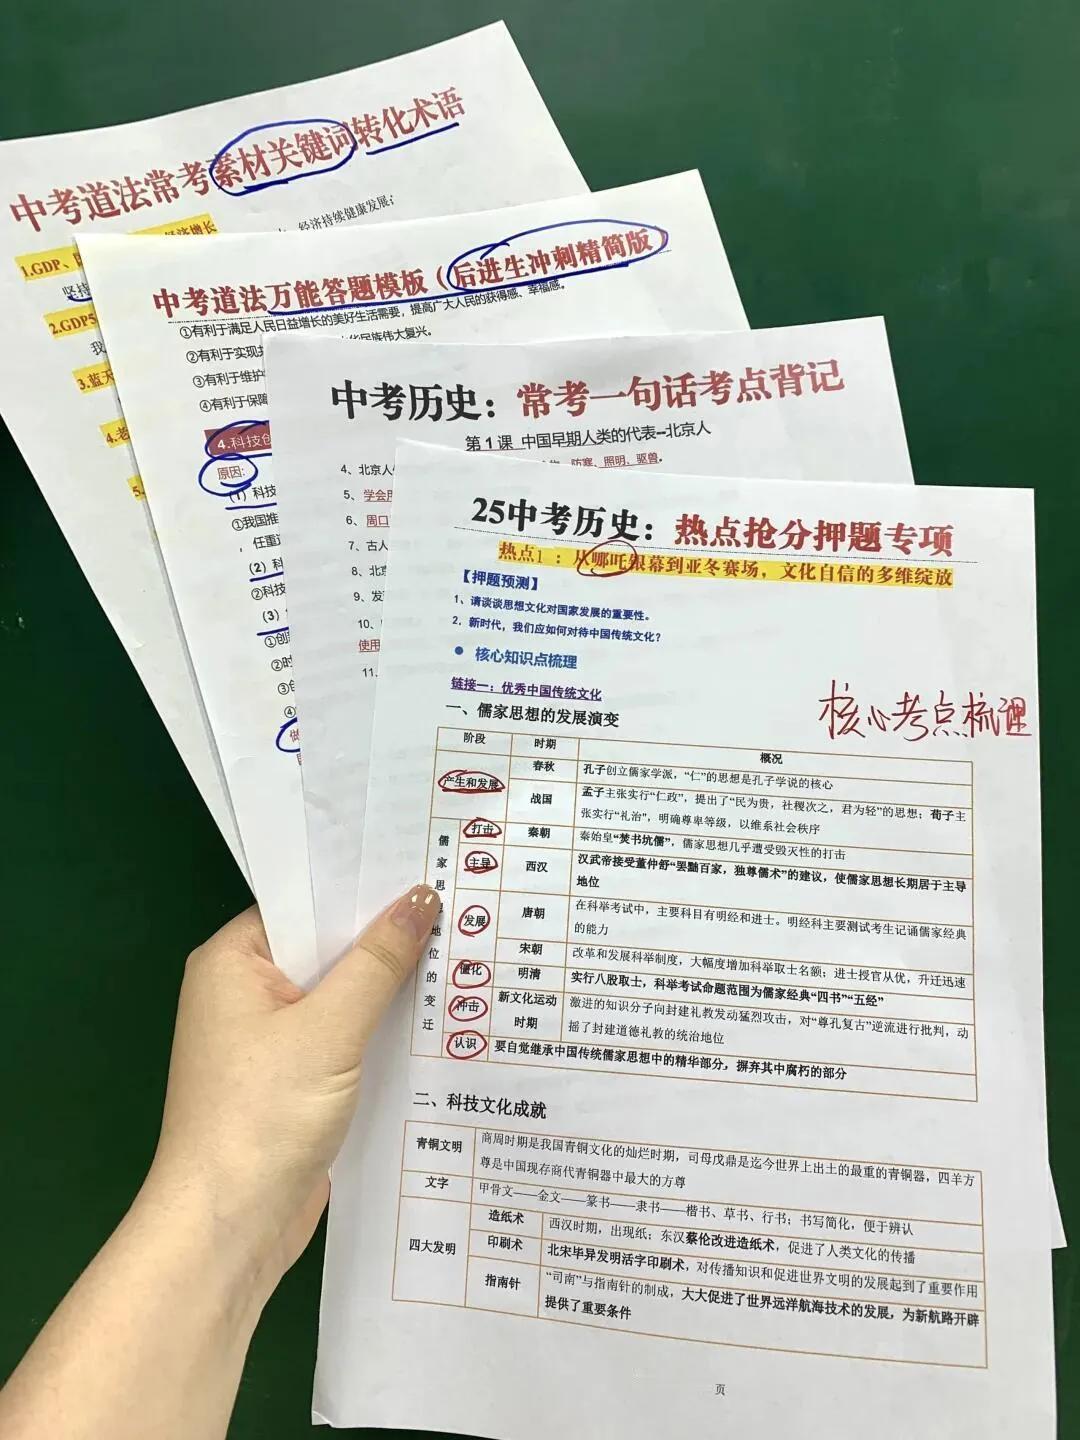 中考道法常考素材关键词转化术语
经济持续健康发展；
1.GDP、
经济增长
坚持
2.GDP5
我
3.蓝天
4.老
5.
中考道法万能答题模板（后进生冲刺精简版）
①有利于满足人民日益增长的美好生活需要，提高广大人民的获得感、幸福感。
②有利于实现
华民族伟大复兴。
③有利于维护
④有利于保障
4.科技创
原因:
（1）科技
①我国推
任重
（2）科
②科技
（3）
①创
②时
③创
④
做
中考历史：常考一句话考点背记
第1课 中国早期人类的代表--北京人
防寒、照明、驱兽。
4、北京人
5、学会用
6、周口
7、古人
8、北京
9、发
10、
使用
11、
25中考历史：热点抢分押题专项
热点1：从哪吒银幕到亚冬赛场，文化自信的多维绽放
【押题预测】
1、请谈谈思想文化对国家发展的重要性。
2、新时代，我们应如何对待中国传统文化？
● 核心知识点梳理
链接一：优秀中国传统文化
核心考点梳理
一、儒家思想的发展演变
阶段 时期 概况
产生和发展 春秋 孔子创立儒家学派，“仁”的思想是孔子学说的核心
战国 孟子主张实行“仁政”，提出了“民为贵，社稷次之，君为轻”的思想；荀子主
张实行“礼治”，明确尊卑等级，以维系社会秩序
儒家思想地位的变迁
打击 秦朝 秦始皇“焚书坑儒”，儒家思想几乎遭受毁灭性的打击
主导 西汉 汉武帝接受董仲舒“罢黜百家，独尊儒术”的建议，使儒家思想长期居于主导
地位
发展 唐朝 在科举考试中，主要科目有明经和进士。明经科主要测试考生记诵儒家经典
的能力
宋朝 改革和发展科举制度，大幅度增加科举取士名额；进士授官从优，升迁迅速
僵化 明清 实行八股取士，科举考试命题范围为儒家经典“四书”“五经”
冲击 新文化运动 激进的知识分子向封建礼教发动猛烈攻击，对“尊孔复古”逆流进行批判，动
时期 摇了封建道德礼教的统治地位
认识 要自觉继承中国传统儒家思想中的精华部分，摒弃其中腐朽的部分
二、科技文化成就
青铜文明 商周时期是我国青铜文化的灿烂时期，司母戊鼎是迄今世界上出土的最重的青铜器，四羊方
尊是中国现存商代青铜器中最大的方尊
文字 甲骨文——金文——篆书——隶书——楷书、草书、行书；书写简化，便于辨认
四大发明 造纸术 西汉时期，出现纸；东汉蔡伦改进造纸术，促进了人类文化的传播
印刷术 北宋毕昇发明活字印刷术，对传播知识和促进世界文明的发展起到了重要作用
指南针 “司南”与指南针的制成，大大促进了世界远洋航海技术的发展，为新航路开辟
提供了重要条件
页